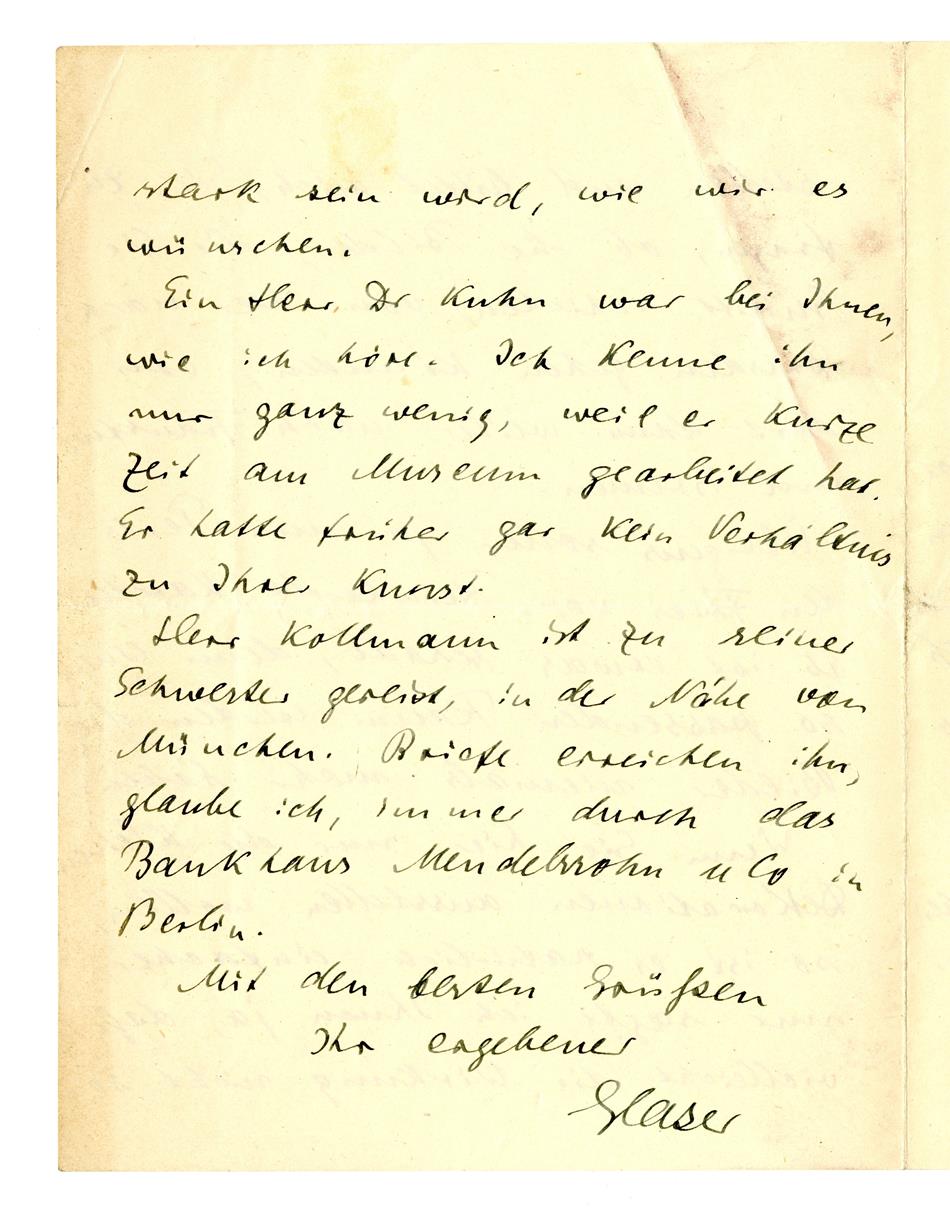 stark sein wird, wie wir es
wünschen.
Ein Herr Dr Kuhn war bei Ihnen,
wie ich höre. Ich kenne ihn
nur ganz wenig, weil er kurze
Zeit am Museum gearbeitet hat.
Er hatte früher gar kein Verhältnis
zu Ihrer Kunst.
Herr Kollmann ist zu seiner
Schwester gereist, in der Nähe von
München. Briefe erreichen ihn,
glaube ich, immer durch das
Bankhaus Mendelssohn u Co in
Berlin.
Mit den besten Grüßen
Ihr ergebener
Glaser